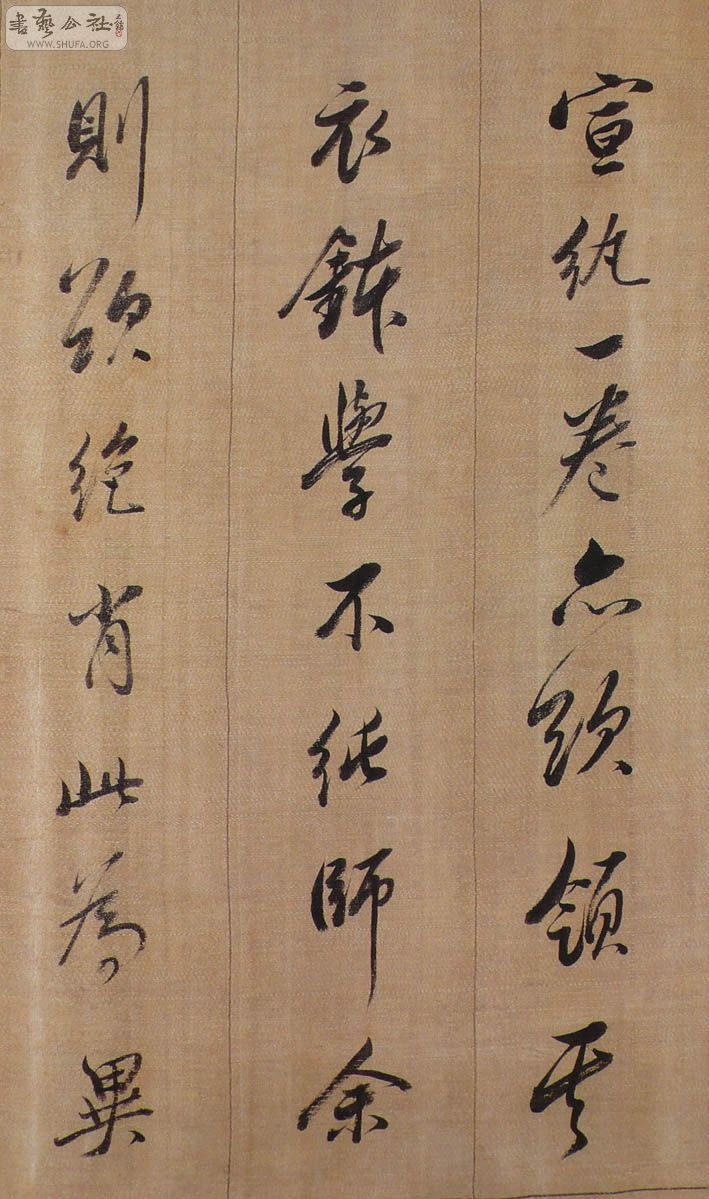 宣紈一卷亦欲領其
衣鉢學不純師余
則欲絕肖此為異
書藝公社
WWW.SHUFA.ORG